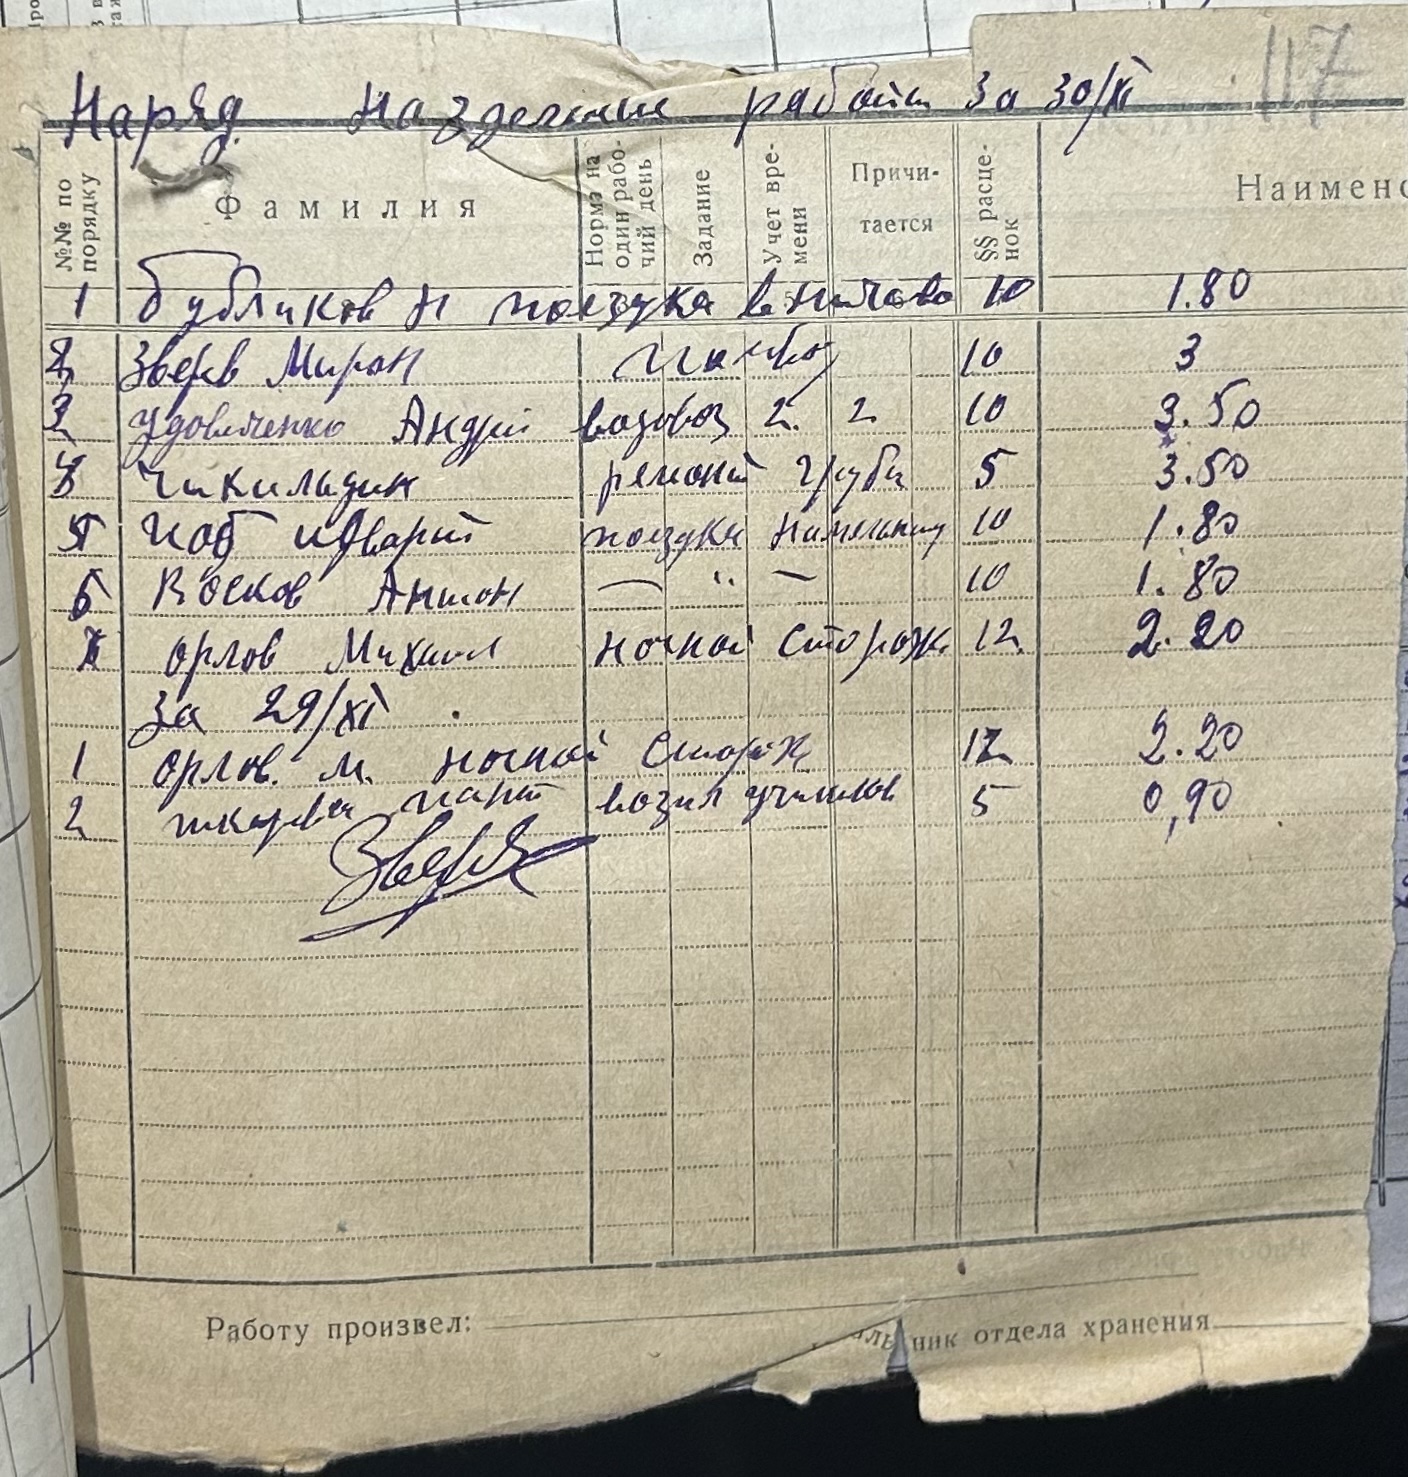 117
Наряд. на зделные работы за 30/XI
№№ по порядку
Фамилия
Норма на один рабо-чий день
Задание
Учет вре-мени
Причи-тается
§§ расце-нок
Наимено
1 Бубликов Н поездка в 10 1.80
2 Зверев Мирон 10 3
3 Удовиченко Андрей возовоз 2. 2 10 3.50
4 Чикильдин ремонт груби 5 3.50
5 поездка на мельницу 10 1.80
6 Восков Антон — " — 10 1.80
7 Орлов Михаил ночной сторож 12. 2.20
за 29/XI.
1 Орлов. М. ночной сторож 12 2.20
2 возил учиников 5 0,90
Зверев
Работу произвел:
ник отдела хранения